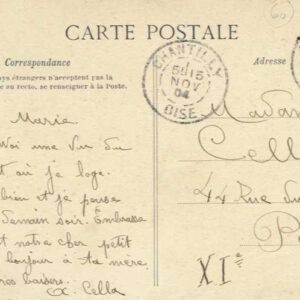 60
CARTE POSTALE
Correspondance
Adresse
ays étrangers n'acceptent pas la
au recto, se renseigner à la Poste.
CHANTILLY
5E 15
NOV
04
OISE
Marie
Voi une Vue du
t où je loge.
bien et je pense
demain soir. Embrasse
t notre cher petit
bonjour à ta mère.
res baisers.
Cella
Madam
Cella
44 Rue du
P
XIe